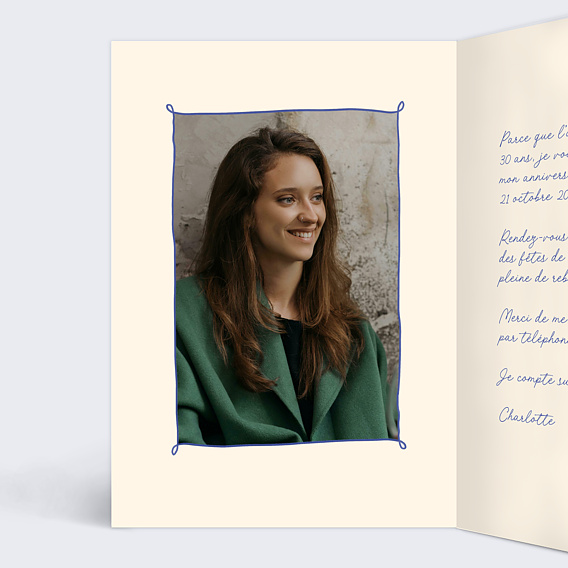 Parce que l'
30 ans, je vo
mon annivers
21 octobre 20
Rendez-vous
des fêtes de
pleine de reb
Merci de me
par téléphon
Je compte su
Charlotte